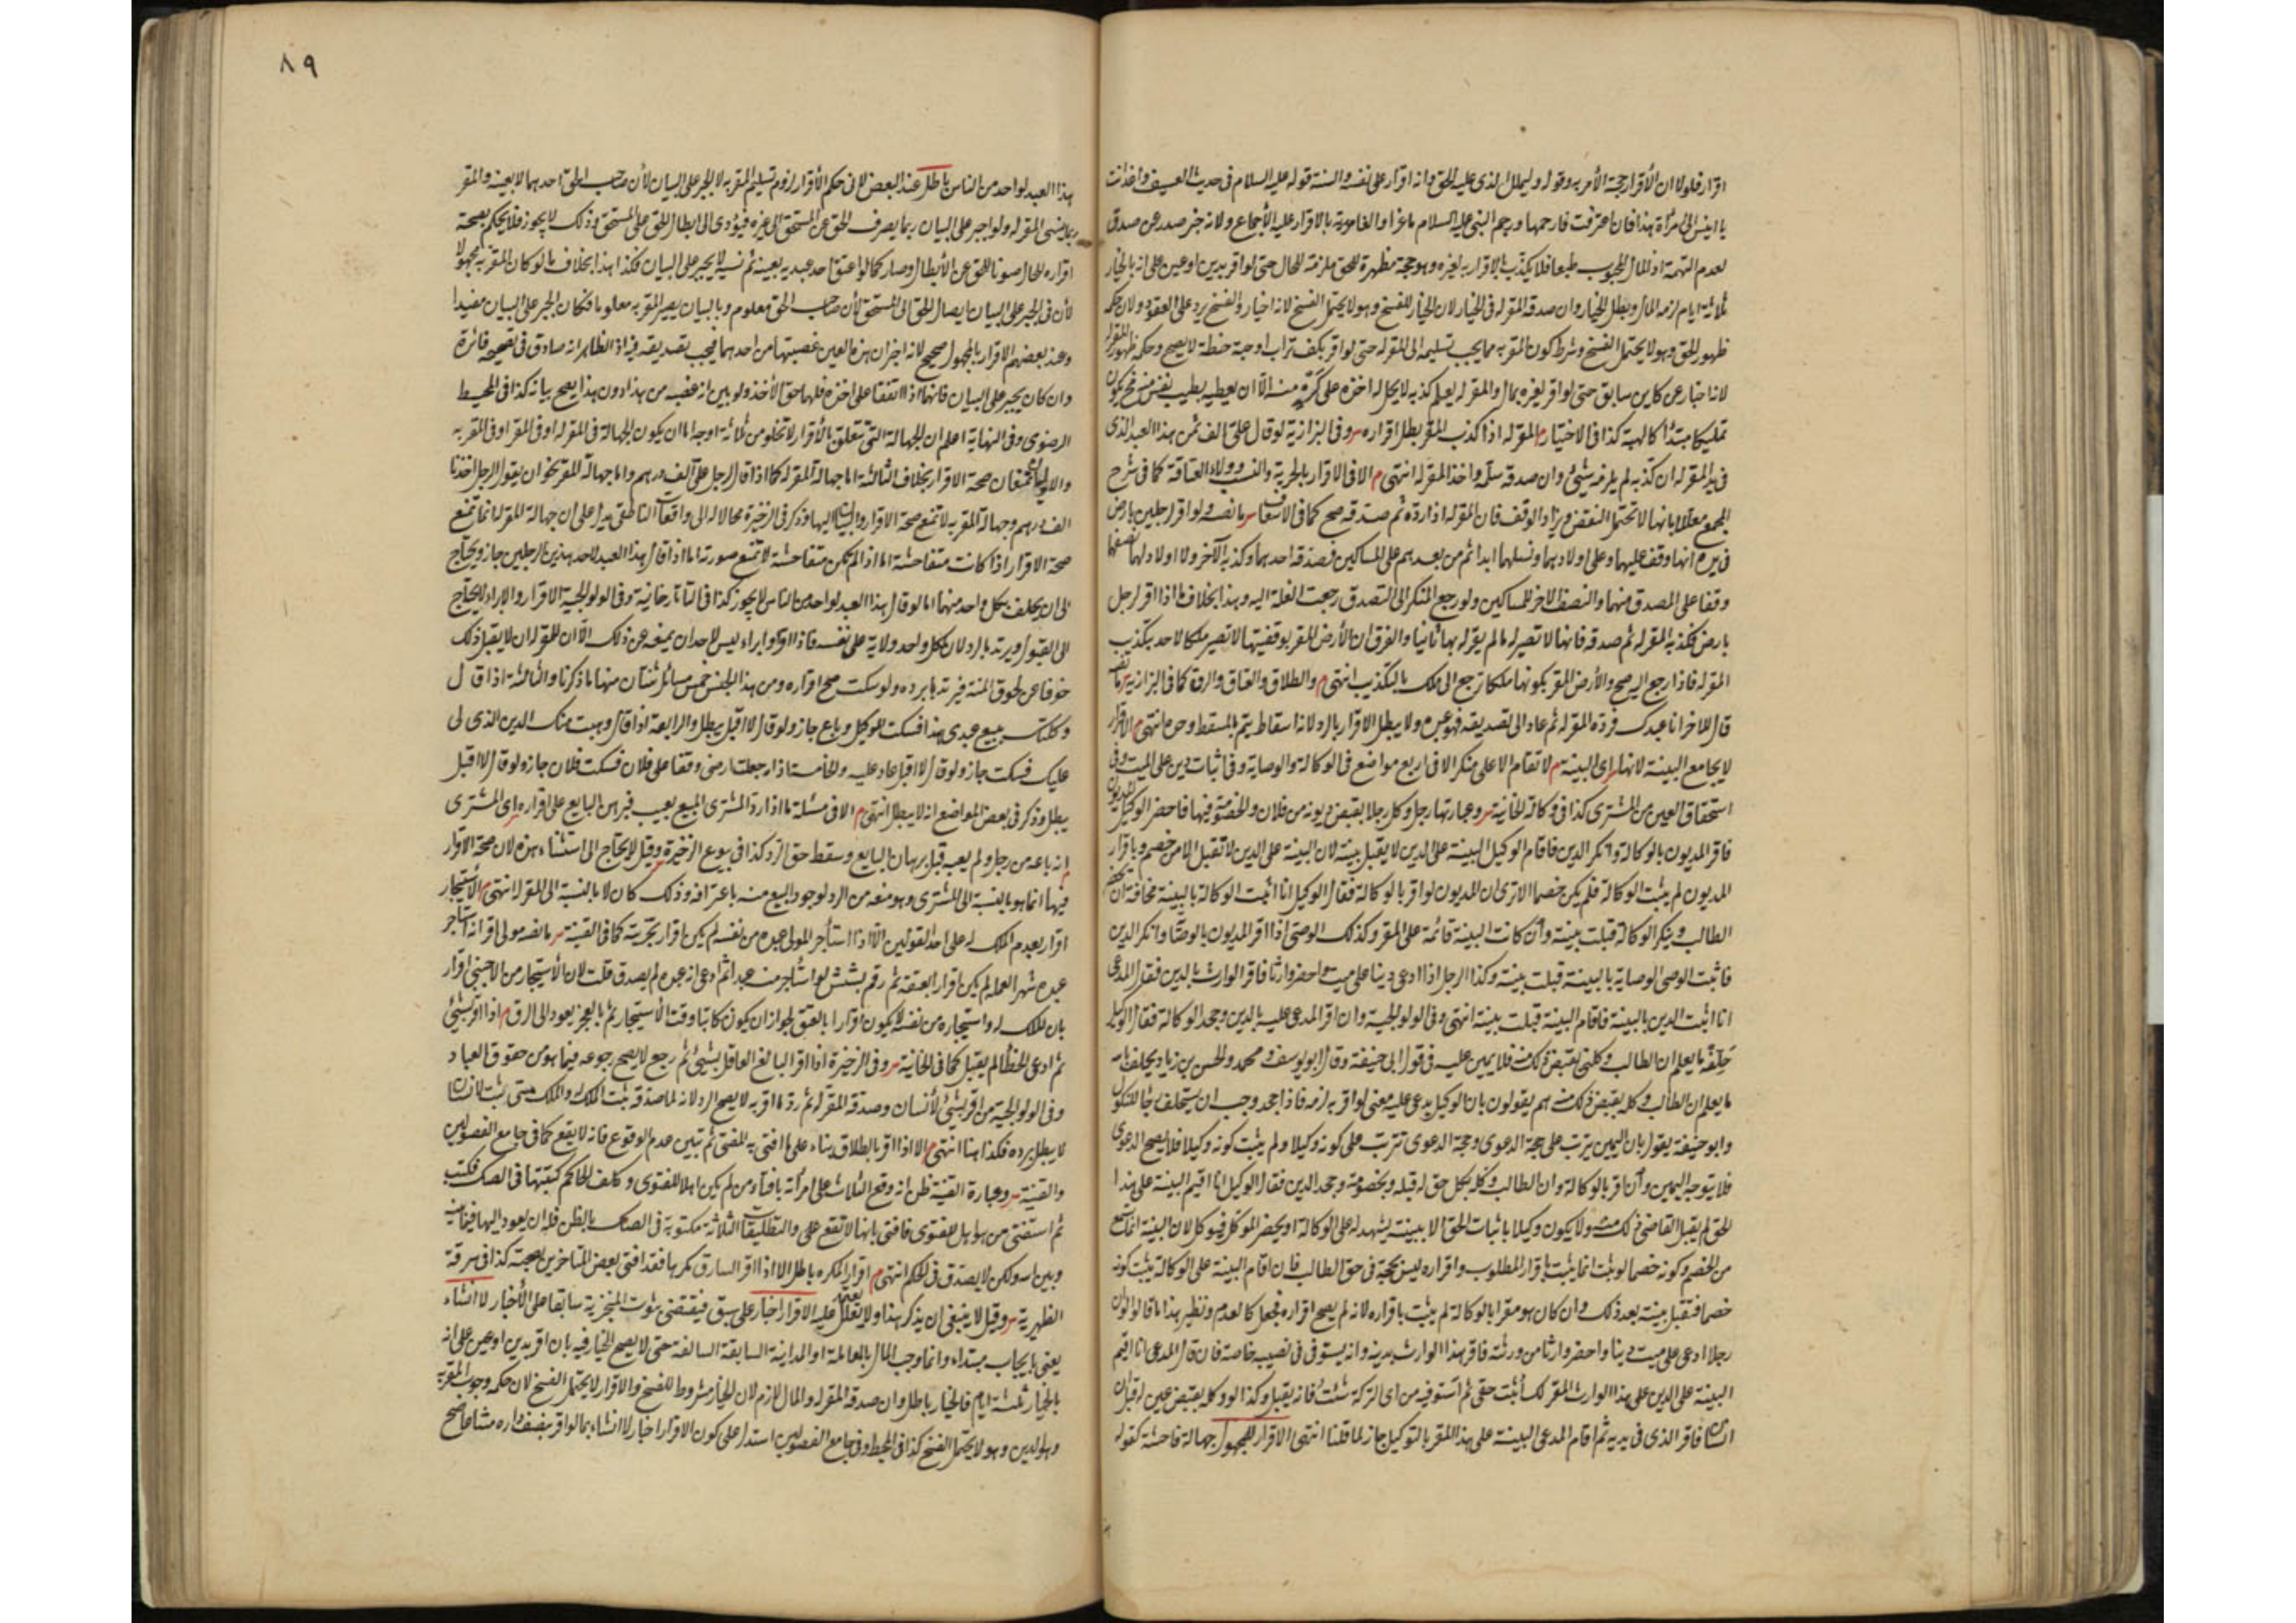 اقرار فلولا ان الأقرار حجة لأمر به وقوله وليملل الذى عليه الحق وانه اقرار على نفسه والسنة قوله عليه السلام فى حديث العسيف واغد انت
يا انيس الى امرأة هذا فان اعترفت فارجمها ورجم النبى عليه السلام ماعزا والغامدية بالاقرار عليه الأجماع ولانه خبر صدر عن صدق
لعدم التهمة اذ المال المحبوب طبعا فلا يكذب بالاقرار به لغيره وهو حجة مظهرة للحق ملزمة للحال حتى لو اقر بدين او عين على انه بالخيار
ثلاثة ايام لزمه المال وبطل الخيار وان صدقه المقر له فى الخيار لان الخيار للفسخ وهو لا يحتمل الفسخ لانه اخبار والفسخ يرد على العقود ولان حكمه
ظهور الحق وهو لا يحتمل الفسخ وشرط كون المقر به مما يجب تسليمه الى المقر له حتى لو اقر بكف تراب او حبة حنطة لا يصح وحكمه ظهور المقر به
لانه اخبار عن كاين سابق حتى لو اقر لغيره بمال والمقر له يعلم كذبه لا يحل له اخذه على كره منه الا ان يعطيه بطيب نفس منه فح يكون
تمليكا مبتدأ كالهبة كذا فى الاختيار م المقر له اذا كذب المقر بطل اقراره وفى البزازية لو قال له على الف ثمن هذا العبد الذى
فى يد المقر له ان كذبه لم يلزمه شئ وان صدقه سلمه واخذ المقر له انتهى م الا فى الاقرار بالحرية والنسب وولاء العتاقة كما فى شرح
المجمع معللا بانها لا تحتمل النقض ويزاد الوقف فان المقر له اذا رده ثم صدقه صح كما فى الاسعاف ما نصه ولو اقر لرجلين بارض
فى يده انها وقف عليهما وعلى اولادهما ونسلهما ابدا ثم من بعدهم على المساكين فصدقه احدهما وكذبه الآخر ولا اولاد لهما نصفها
وقفا على المصدق منهما والنصف الاخر للمساكين ولو رجع المنكر الى التصدق رجعت الغلة اليه وهذا بخلاف ما اذا اقر لرجل
بارض فكذبه المقر له ثم صدقه فانها لا تصير له ما لم يقر له بها ثانيا والفرق ان الأرض المقر بوقفيتها لا تصير ملكا لاحد بتكذيب
المقر له فاذا رجع اليه صح والأرض المقر بكونها ملكا ترجع الى ملكه بالتكذيب انتهى م والطلاق والعتاق والرق كما فى البزازية ما نصه
قال للاخر انا عبدك فرده المقر له ثم عاد الى تصديقه فهو عبده ولا يبطل الاقرار بالرد لانه اسقاط يتم بالمسقط وحده انتهى م الاقرار
لا يجامع البينة لانها اى البينة م لا تقام الا على منكر الا فى اربع مواضع فى الوكالة والوصاية وفى اثبات دين على الميت وفى
استحقاق العين من المشترى كذا فى وكالة الخانية وعبارتها رجل وكل رجلا بقبض ديونه من فلان والخصومة فيها فاحضر الوكيل المديون
فاقر المديون بالوكالة وانكر الدين فاقام الوكيل البينة على الدين لا يقبل بينة لان البينة على الدين لا تقبل الا من خصم وباقرار
المديون لم يثبت الوكالة فلم يكن خصما الا ترى ان المديون لو اقر بالوكالة فقال الوكيل انا اثبت الوكالة بالبينة مخافة ان
الطالب وينكر الوكالة قبلت بينة وان كانت البينة قائمة على المقر وكذلك الوصى اذا اقر المديون بالوصاية وانكر الدين
فاثبت الوصى الوصاية بالبينة قبلت بينة وكذا الرجل اذا ادعى دينا على ميت واحضر وارثا فاقر الوارث بالدين فقال المدعى
انا اثبت الدين بالبينة فاقام البينة قبلت بينة انتهى وفى الولوالجية وان اقر المدعى عليه بالدين وجحد الوكالة فقال الوكيل
حلفه ما يعلم ان الطالب وكلنى بقبض ذلك منه فلا يمين عليه فى قول ابى حنيفة وقال ابو يوسف ومحمد والحسن بن زياد يحلف بالله
ما يعلم ان الطالب وكله بقبض ذلك منه هم يقولون بان الوكيل يدعى عليه معنى لو اقر به لزمه فاذا جحد وجب ان يستحلف رجاء للنكول
وابو حنيفة يقول بان اليمين يترتب على صحة الدعوى وصحة الدعوى تترتب على كونه وكيلا ولم يثبت كونه وكيلا فلا يصح الدعوى
فلا يتوجه اليمين وان اقر بالوكالة وان الطالب وكله بكل حق له قبله وبخصومة وجحد الدين فقال الوكيل انا اقيم البينة على هذا
الحق لم يقبل القاضى ذلك منه ولا يكون وكيلا باثبات الحق الا ببينة يشهد له على الوكالة او يحضر الموكل فيوكله لان البينة انما تسمع
من الخصم وكونه خصما لو يثبت انما يثبت باقرار المطلوب واقراره ليس بحجة فى حق الطالب فان اقام البينة على الوكالة يثبت كونه
خصما فتقبل بينة بعد ذلك وان كان هو مقرا بالوكالة لم يثبت باقراره لانه لم يصح اقراره فجعل كالعدم ونظير هذا ما قالوا لو ان
رجلا ادعى على ميت دينا واحضر وارثا من ورثته فاقر هذا الوارث بدينه وانه يستوفى فى نصيبه خاصة فان قال المدعى انا اقيم
البينة على الدين على هذا الوارث المقر لك اثبت حقى ثم استوفيه من اى التركة شئت فانه يقبل وكذا لو وكله بقبض عين له قبل
انسان فاقر الذى فى يديه ثم اقام المدعى البينة على هذا المقر بالتوكيل جاز لما قلنا انتهى الاقرار للمجهول جهالة فاحشة كقوله
٨٩
هذا العبد لواحد من الناس باطل عند البعض لان فى حكم الأقرار لزوم تسليم المقر به لا الجبر على البيان لأن صاحب الحق احدهما لا بعينه والمقر
ربما ينسى المقر له ولو اجبر على البيان ربما يصرف الحق عن المستحق الى غيره فيؤدى الى ابطال الحق على المستحق وذلك لا يجوز فلا يحكم بصحة
اقراره للحال صونا للحق عن الأبطال وصار كما لو اعتق احد عبديه بعينه ثم نسيه لا يجبر على البيان فكذا هذا بخلاف ما لو كان المقر به مجهولا
لأن فى الجبر على البيان ايصال الحق الى المستحق لأن صاحب الحق معلوم وبالبيان يصير المقر به معلوما فكان الجبر على البيان مفيدا
وعند بعضهم الاقرار بالمجهول صحيح لانه اخبر ان هذه العين غصبتها من احدهما فيجب تصديقه فيه اذ الظاهر انه صادق فى تصحيحه فائدة
وان كان يجبر على البيان فانهما اذا اتفقا على اخذه فلهما حق الأخذ ولو بين انه غصبه من هذا دون هذا يصح بيانه كذا فى المحيط
الرضوى وفى النهاية اعلم ان الجهالة التى تتعلق بالأقرار لا تخلو من ثلاثة اوجه اما ان يكون الجهالة فى المقر له او فى المقر او فى المقر به
والاوليان تمنعان صحة الاقرار بخلاف الثالثة اما جهالة المقر له كما اذا قال لرجل على الف درهم واما جهالة المقر نحو ان يقول الرجل اخذنا
الف درهم وجهالة المقر به لا تمنع صحة الاقرار والبيان اليها وذكر فى الذخيرة محالا له الى واقعات الناطفى يدل على ان جهالة المقر له انما تمنع
صحة الاقرار اذا كانت متفاحشة اما اذا لم تكن متفاحشة لا تمنع صورته اما اذا قال هذا العبد لاحد هذين الرجلين جاز ويحتاج
الى ان يحلف بكل واحد منهما اما لو قال هذا العبد لواحد من الناس لا يجوز كذا فى التاتارخانية وفى الولوالجية الاقرار والابراء لا يحتاج
الى القبول ويرتد بالرد لان لكل واحد ولاية على نفسه فاذا اقر وابراء ليس لاحد ان يمنعه عن ذلك الا ان للمقر له ان لا يقبل ذلك
خوفا من لحوق المنة فيرتد برده ولو سكت صح اقراره ومن هذا الجنس خمس مسائل ثنتان منها ما ذكرنا والثالثة اذا قال
وكلتك ببيع عبدى هذا فسكت الوكيل وباع جاز ولو قال لا اقبل يبطل والرابعة اذا قال وهبت منك الدين الذى لى
عليك فسكت جاز ولو قال لا اقبل عاد عليه والخامسة اذا جعلت ارضى وقفا على فلان فسكت فلان جاز ولو قال لا اقبل
يبطل وذكر فى بعض المواضع انه لا يبطل انتهى م الا فى مسئلة ما اذا رد المشترى المبيع بعيب فبرهن البايع على اقراره اى المشترى
م انه باعه من رجل ولم يعب قبل برهان البايع وسقط حق الرد كذا فى بيوع الذخيرة وقيل لا يحتاج الى استثناء هذه لان صحة الاقرار
فيها انما هو بالنسبة الى المشترى وهو منعه من الرد لوجود البيع منه باعترافه وذلك كان لا بالنسبة الى المقر له انتهى م الأستيجار
اقرار بعدم الملك له على احد القولين الا اذا استأجر المولى عبده من نفسه لم يكن اقرار بحريته كما فى القنية ما نصه مولى اقر انه استأجر
عبده شهر العمله لم يكن اقرار العتقه ثم رقم بشش لو استأجر منه عبدا ثم ادعى انه عبده لم يصدق قلت لان الأستيجار من الاجنبى اقرار
بان الملك له واستيجاره من نفسه لا يكون اقرارا بالعتق لجواز ان يكون كاتبا وقت الأستيجار ثم بالعجز يعود الى الرق م اذا اقر بشئ
ثم ادعى الخطأ لم يقبل كما فى الخانية وفى الذخيرة اذا اقر البالغ العاقل بشئ ثم رجع لا يصح رجوعه فيما هو من حقوق العباد
وفى الولوالجية من اقر بشئ لأنسان وصدقه المقر له ثم رد ما اقر به لا يصح الرد لانه لما صدقه ثبت الملك له والملك متى ثبت لانسان
لا يبطل برده فكذا هنا انتهى م الا اذا اقر بالطلاق بناء على ما افتى به المفتى ثم تبين عدم الوقوع فانه لا يقع كما فى جامع الفصولين
والقنية وعبارة القنية ظن انه وقع الثلاث على امرأته بافتاء من لم يكن اهلا للفتوى وكلف الحاكم كتبتها فى الصك فكتب
ثم استفتى من هو اهل للفتوى فافتى بانها لا تقع على والتطليقات الثلاثة مكتوبة فى الصك بالظن فله ان يعود اليها فيما بينه
وبين الله ولكن لا يصدق فى الحكم انتهى م اقرار المكره باطل الا اذا اقر السارق مكرها فقد افتى بعض المتاخرين بصحته كذا فى سرقة
الظهيرية وقيل لا ينبغى ان يذكر هنا ولا يعلل عليه الاقرار اخبار على سبق فيقتضى ثبوت المخبر به سابقا على الأخبار لا انشاء
يعنى بايجاب مبتداء وانما وجب المال بالعاملة او المداينة السابقة السالفة حتى لا يصح الخيار فيه بان اقر بدين او عين على انه
بالخيار ثلثة ايام فالخيار باطل وان صدقه المقر له والمال لازم لان الخيار مشروط للفسخ والاقرار لا يحتمل الفسخ لان حكمه وجوب المقر به
وهو الدين وهو لا يحتمل الفسخ كذا فى المحيط وفى جامع الفصولين استدل على كون الاقرار اخبار لا انشاء بما لو اقر بنصف داره مشاعا صح